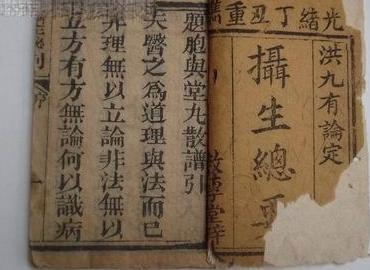 光緒丁丑重鐫
洪九有論定
攝生總要
敬學堂梓
題胞與堂丸散譜引
夫醫之為道理與法而已
非理無以立論非法無以
立方有方無論何以識病